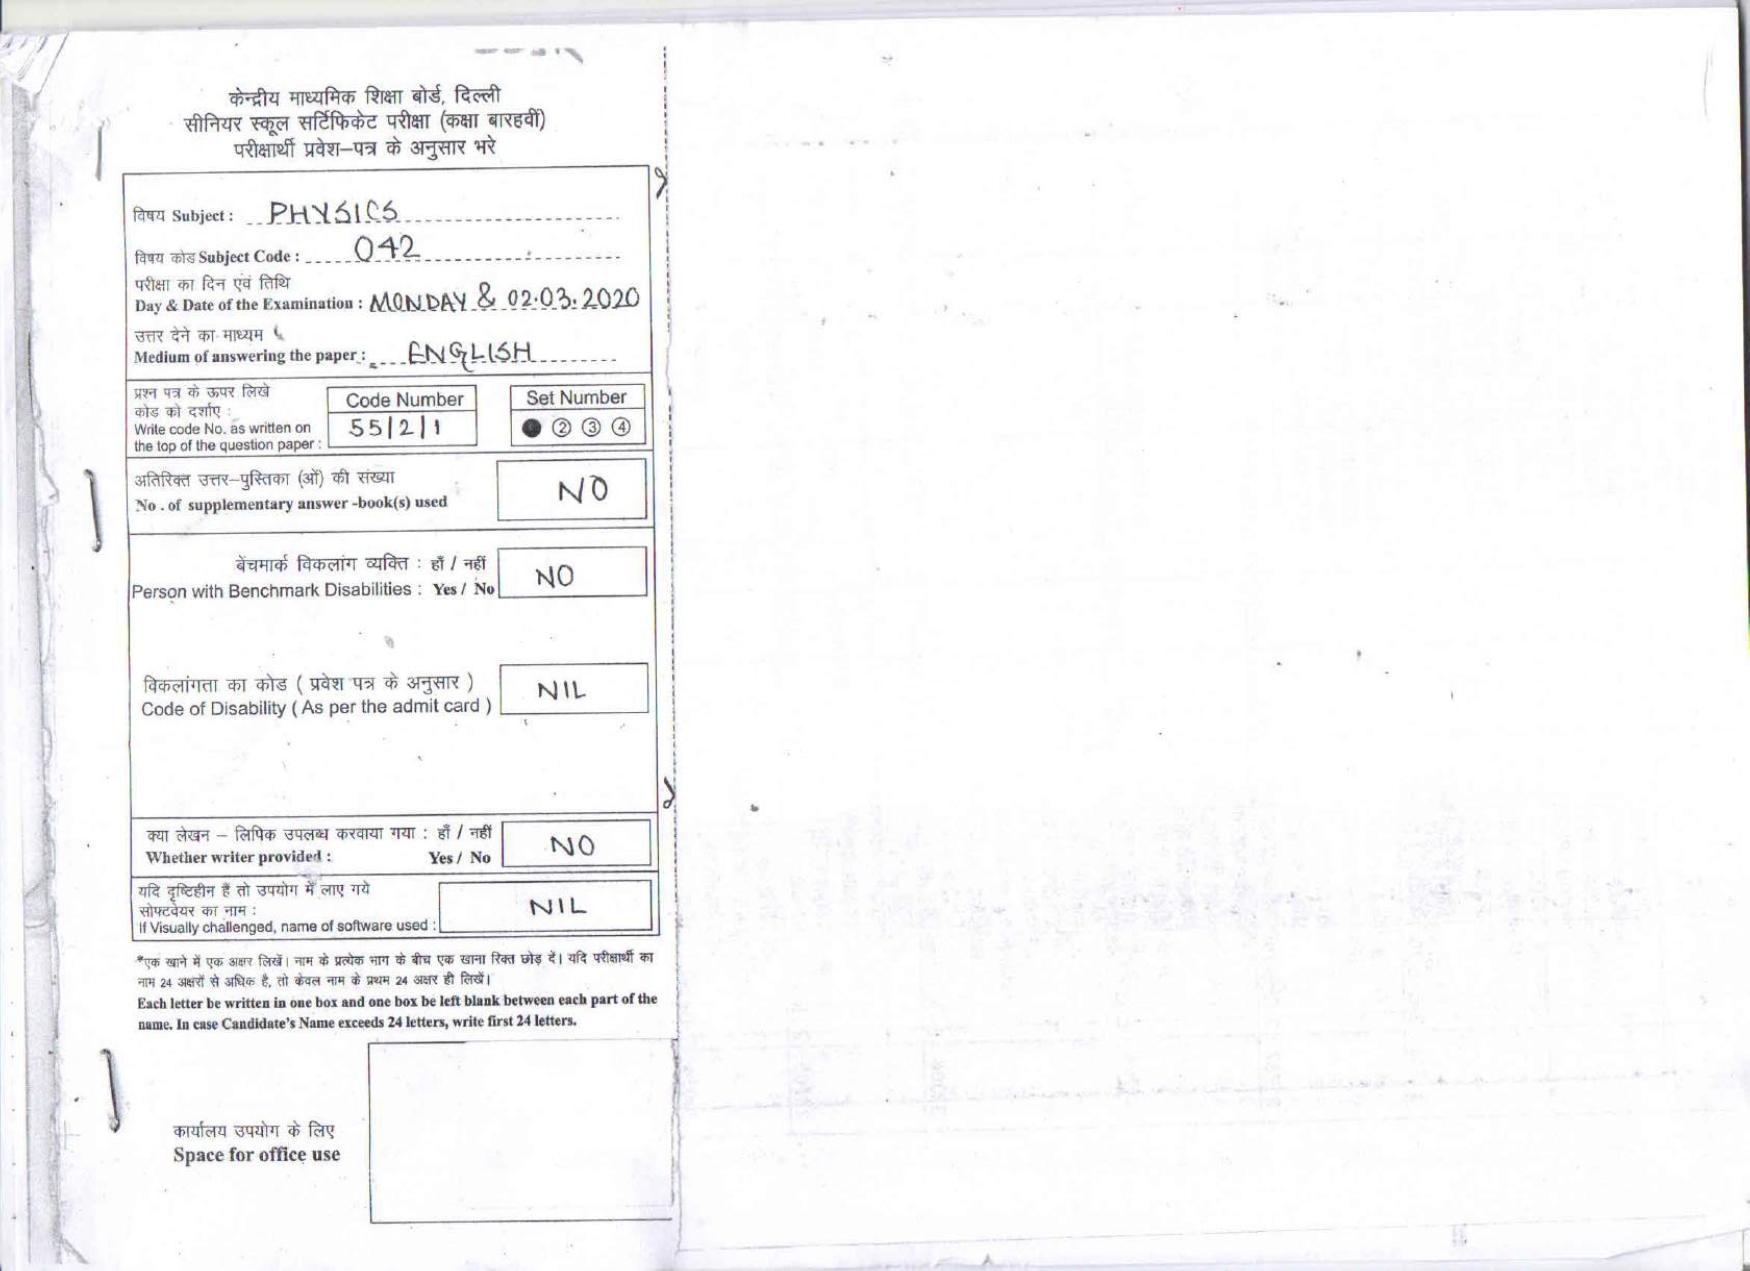 केन्द्रीय माध्यमिक शिक्षा बोर्ड, दिल्ली
सीनियर स्कूल सर्टिफिकेट परीक्षा (कक्षा बारहवीं)
परीक्षार्थी प्रवेश–पत्र के अनुसार भरे
विषय Subject : PHYSICS
विषय कोड Subject Code : 042
परीक्षा का दिन एवं तिथि
Day & Date of the Examination : MONDAY & 02.03.2020
उत्तर देने का माध्यम
Medium of answering the paper : ENGLISH
प्रश्न पत्र के ऊपर लिखे
कोड को दर्शाए :
Write code No. as written on
the top of the question paper :
Code Number
55/2/1
Set Number
② ③ ④
अतिरिक्त उत्तर–पुस्तिका (ओं) की संख्या
No . of supplementary answer -book(s) used
NO
बेंचमार्क विकलांग व्यक्ति : हाँ / नहीं
Person with Benchmark Disabilities : Yes / No
NO
विकलांगता का कोड ( प्रवेश पत्र के अनुसार )
Code of Disability ( As per the admit card )
NIL
क्या लेखन – लिपिक उपलब्ध करवाया गया : हाँ / नहीं
Whether writer provided : Yes / No
NO
यदि दृष्टिहीन हैं तो उपयोग में लाए गये
सोफ्टवेयर का नाम :
If Visually challenged, name of software used :
NIL
*एक खाने में एक अक्षर लिखें। नाम के प्रत्येक भाग के बीच एक खाना रिक्त छोड़ दें। यदि परीक्षार्थी का
नाम 24 अक्षरों से अधिक है, तो केवल नाम के प्रथम 24 अक्षर ही लिखें।
Each letter be written in one box and one box be left blank between each part of the
name. In case Candidate's Name exceeds 24 letters, write first 24 letters.
कार्यालय उपयोग के लिए
Space for office use